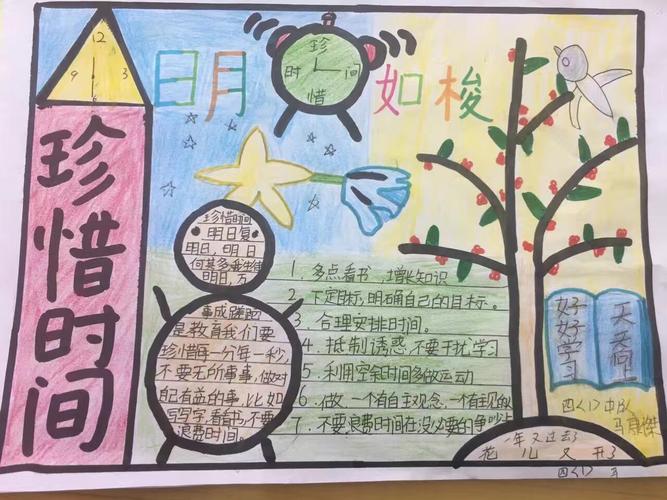 12
9
3
6
珍惜时间
日月如梭
珍
时间
惜
珍惜时间
明日复
明日,明日
何其多我生待
明日,万
事成蹉跎
是教育我们要
珍惜每一分每一秒,
不要无所事事,做对
自己有益的事,比如
写写字,看看书,不要
浪费时间。
1、多点看书,增长知识
2、下定目标,明确自己的目标。
3、合理安排时间。
4、抵制诱惑,不要干扰学习
5、利用空余时间多做运动
6、做一个有自主观念,一个有主见的
7、不要浪费时间在没必要的争吵上
好好学习
天天向上
四〈1〉中队
马康傑
一年又过去了
花儿又开了
四〈1〉